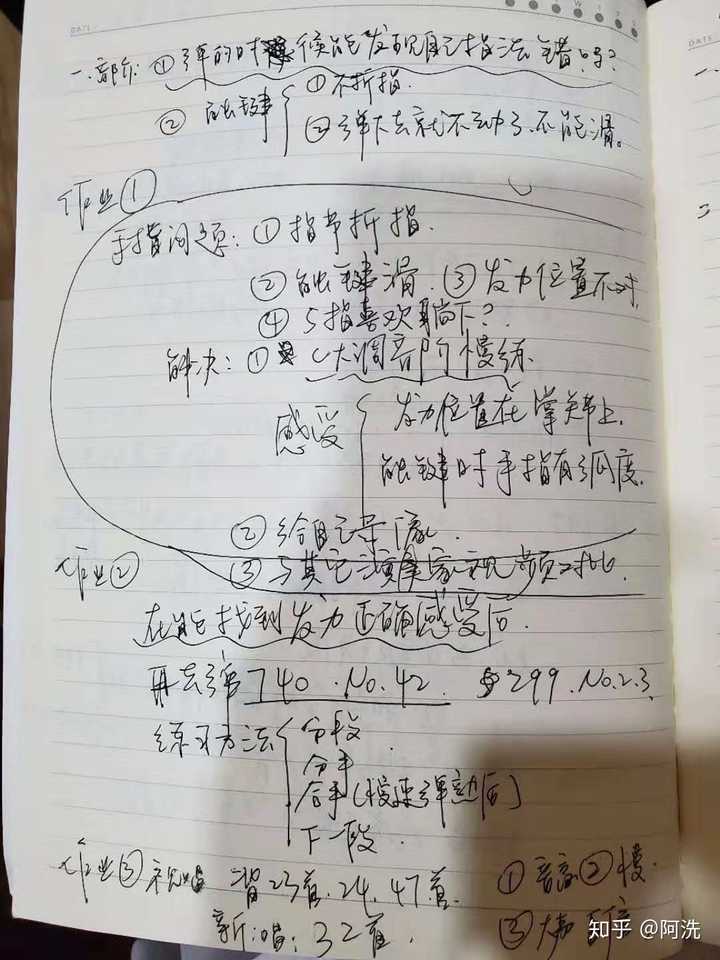 DATE
一、部分: ① 弹的时候能发现自己指法错吗?
② 触键 ① 不折指.
② 弹下去就不动了、不能滑。
作业①
手指问题: ① 指节折指.
② 触键滑. ③ 发力位置不对.
④ 5指喜欢躺下?
解决: ① C大调音阶慢练.
感受 发力位置在掌关节上.
触键时手指有弧度.
② 给自己录像.
作业② ③ 与其它演奏家视频对比.
在能找到发力正确感受后.
再去弹 740. No.42. 299. No.2.3.
练习方法 分段.
分手
合手(慢速弹熟后)
下一段.
作业③ 视唱 背23首. 24. 47首. ① 音高 ② 慢.
新唱: 32首. ③ 大声
知乎 @阿洗